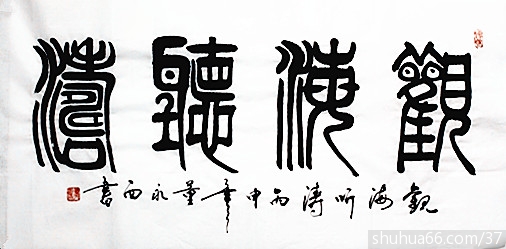 觀海聽濤
觀海听濤 丙申年董永西書
shuhua66.com/37